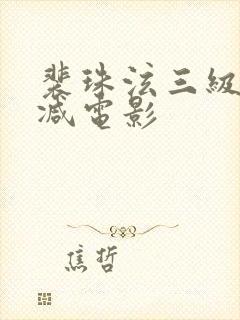 裴珠泫三級
减電影
焦哲